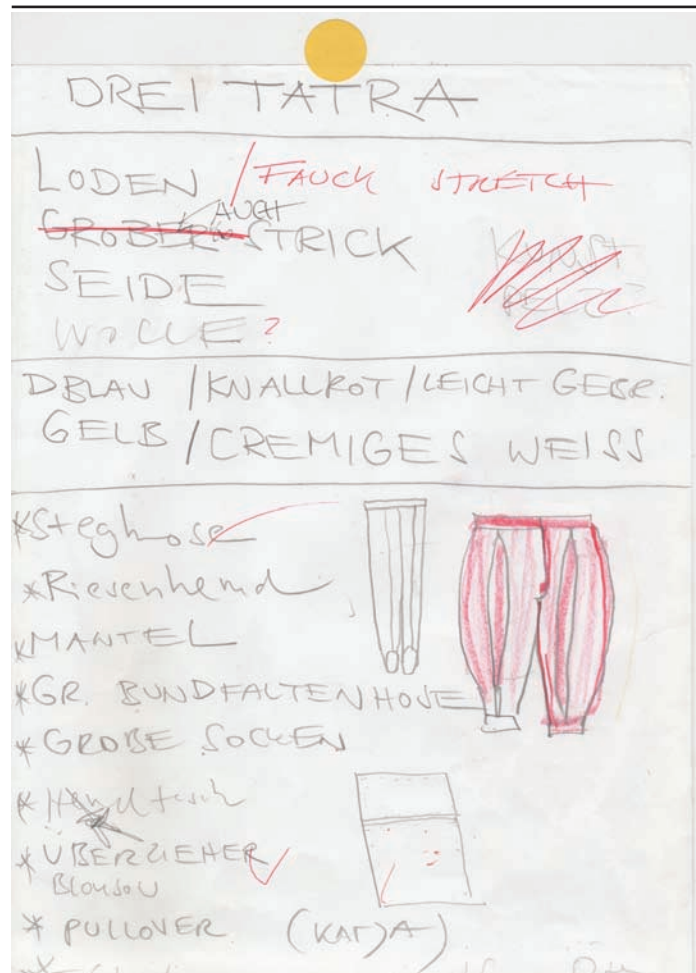 DREI TATRA
LODEN / FAUCH STRETCH
AUCH
GROBER STRICK
KUNST
PELZ?
SEIDE
WOLLE?
DBLAU / KNALLROT / LEICHT GEBR.
GELB / CREMIGES WEISS
*Steghose
*Riesenhemd
*MANTEL
*GR. BUNDFALTENHOSE
*GROBE SOCKEN
*ÜBERZIEHER
BLOUSON
* PULLOVER (KATJA)